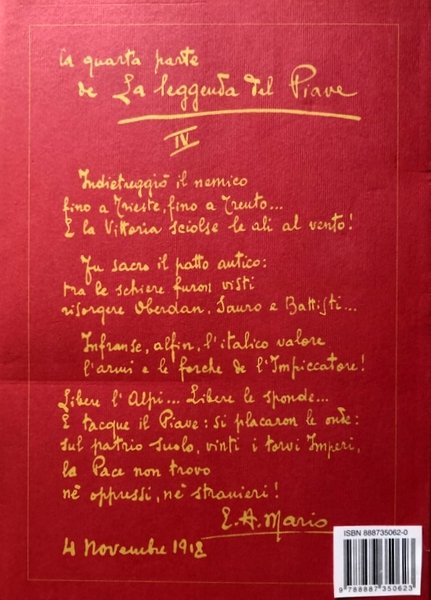 la quarta parte
de La leggenda del Piave
IV
Indietreggiò il nemico
fino a Trieste, fino a Trento...
E la Vittoria sciolse le ali al vento!
Fu sacro il patto antico:
tra le schiere furon visti
risorgere Oberdan, Sauro e Battisti...
Infranse, alfin, l'italico valore
l'armi e le forche de l'Impiccatore!
Libere l'Alpi... Libere le sponde...
E tacque il Piave: si placaron le onde:
sul patrio suolo, vinti i torvi Imperi,
la Pace non trovo
nè oppressi, nè stranieri!
E. A. Mario
4 Novembre 1918
ISBN 888735062-0
9 788887 350623